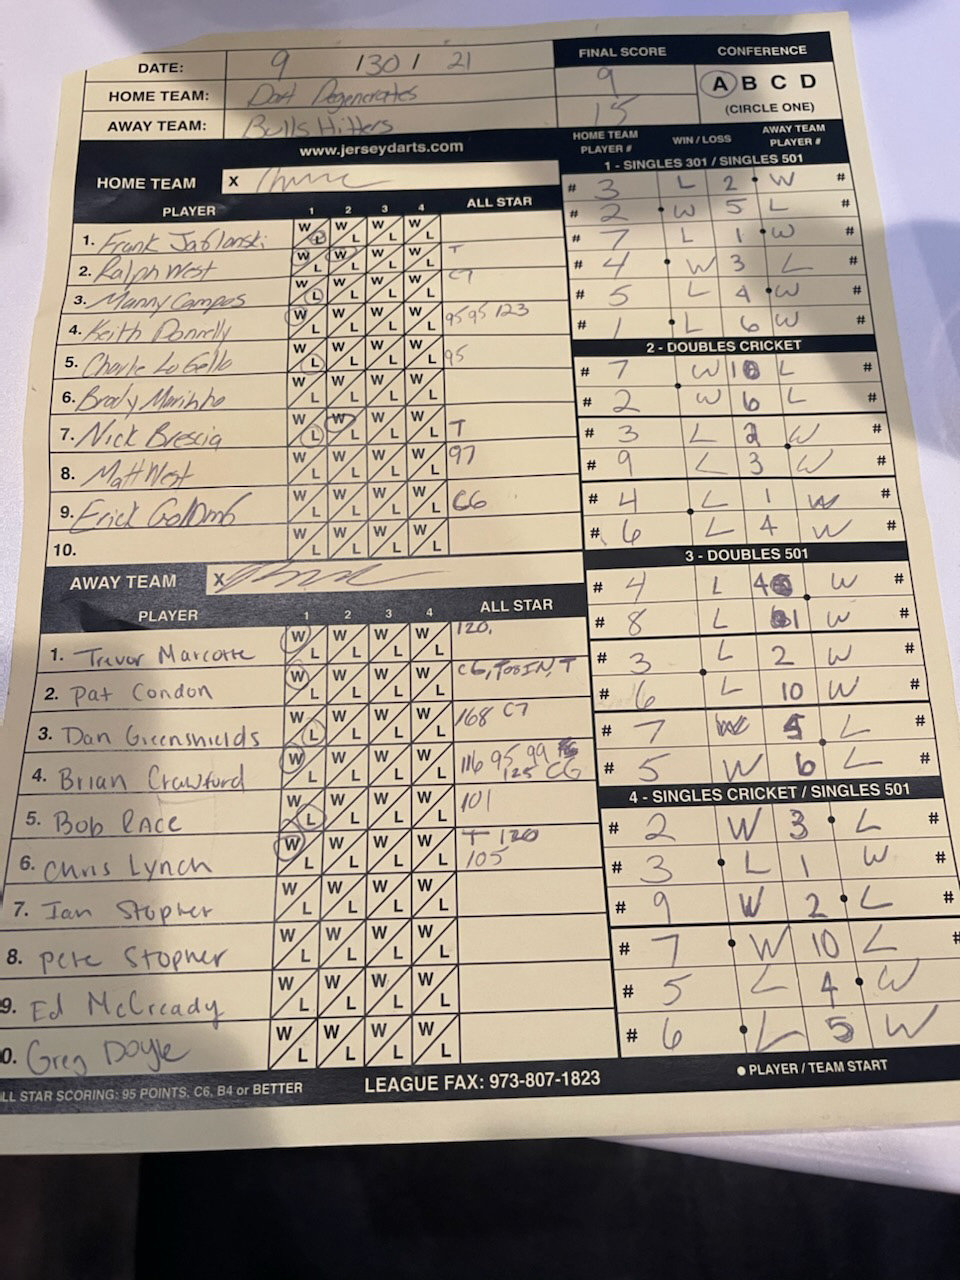 DATE: 9 / 30 / 21
HOME TEAM: Dart Degenerates
AWAY TEAM: Bulls Hitters
FINAL SCORE
9
15
CONFERENCE
A B C D
(CIRCLE ONE)
www.jerseydarts.com
HOME TEAM X
PLAYER 1 2 3 4 ALL STAR
1. Frank Jablonski W L W L W L W L
2. Ralph West W L W L W L W L T
3. Manny Campos W L W L W L W L C7
4. Keith Donnelly W L W L W L W L 95 95 123
5. Charlie LoGello W L W L W L W L 95
6. Brody Marinho W L W L W L W L
7. Nick Brescia W L W L W L W L T
8. Matt West W L W L W L W L 97
9. Erick Golomb W L W L W L W L C6
10. W L W L W L W L
AWAY TEAM X
PLAYER 1 2 3 4 ALL STAR
1. Trevor Marcotte W L W L W L W L 120,
2. Pat Condon W L W L W L W L C6, T08IN, T
3. Dan Greenshields W L W L W L W L 168 C7
4. Brian Crawford W L W L W L W L 116 95 99
125 C6
5. Bob Race W L W L W L W L 101
6. Chris Lynch W L W L W L W L T 120
105
7. Ian Stopher W L W L W L W L
8. Pete Stopher W L W L W L W L
9. Ed McCready W L W L W L W L
0. Greg Doyle W L W L W L W L
LL STAR SCORING: 95 POINTS, C6, B4 or BETTER
LEAGUE FAX: 973-807-1823
HOME TEAM PLAYER # WIN / LOSS AWAY TEAM PLAYER #
1 - SINGLES 301 / SINGLES 501
# 3 L 2 W #
# 2 W 5 L #
# 7 L 1 W #
# 4 W 3 L #
# 5 L 4 W #
# 1 L 6 W #
2 - DOUBLES CRICKET
# 7 W 10 L #
# 2 W 6 L #
# 3 L 2 W #
# 9 L 3 W #
# 4 L 1 W #
# 6 L 4 W #
3 - DOUBLES 501
# 4 L 4 W #
# 8 L 1 W #
# 3 L 2 W #
# 6 L 10 W #
# 7 W 5 L #
# 5 W 6 L #
4 - SINGLES CRICKET / SINGLES 501
# 2 W 3 L #
# 3 L 1 W #
# 9 W 2 L #
# 7 W 10 L #
# 5 L 4 W #
# 6 L 5 W #
PLAYER / TEAM START